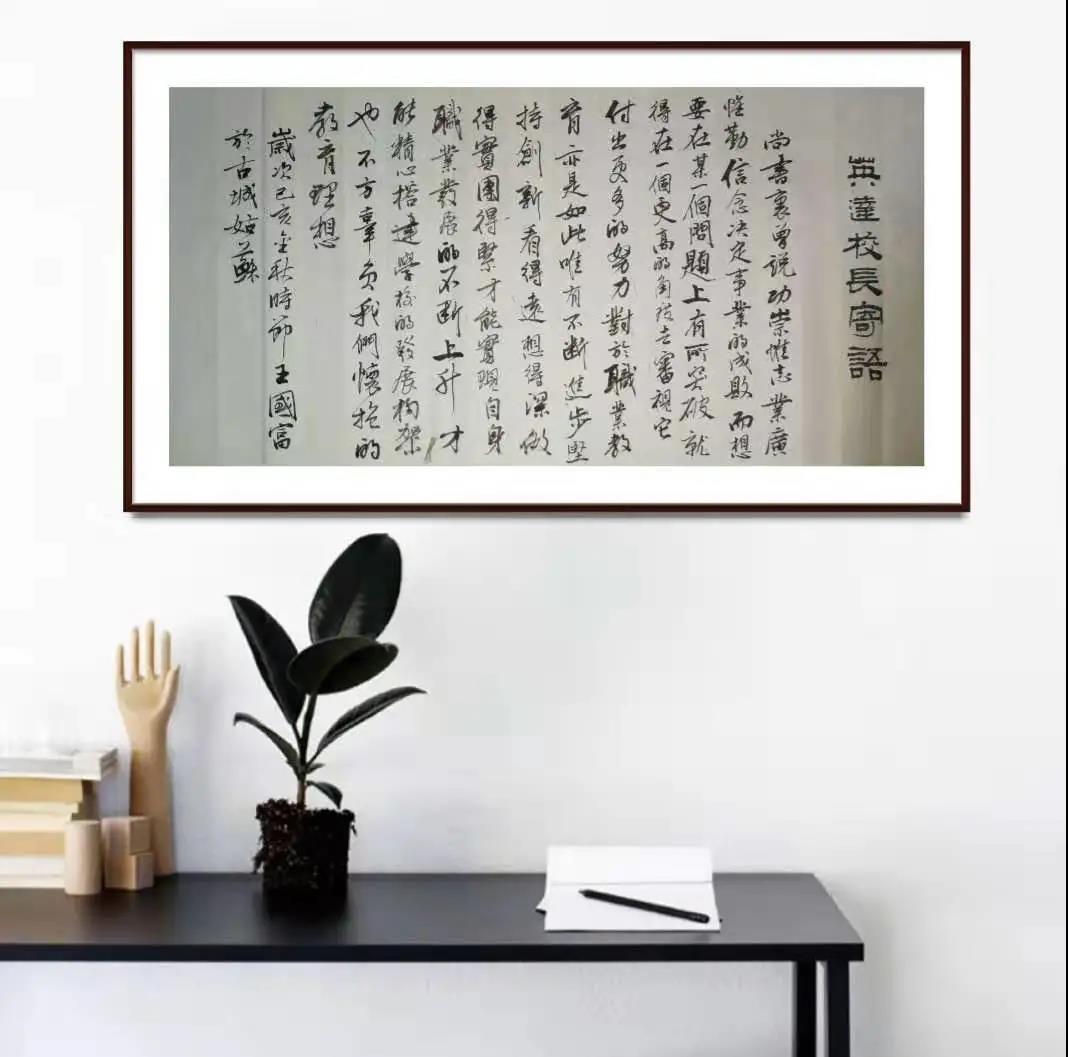 英達校長寄語
尚書裏曾説功崇惟志業廣
惟勤信念决定事業的成敗而想
要在某一個問題上有所突破就
得在一個更高的角度去審視它
付出更多的努力對於職業教
育亦是如此唯有不断進步堅
持創新看得遠想得深做
得實團得緊才能實現自身
職業發展的不断上升才
能精心搭建學校的發展构架
也不方辜負我們懷抱的
教育理想
歲次己亥金秋時節王國富
於古城姑蘇